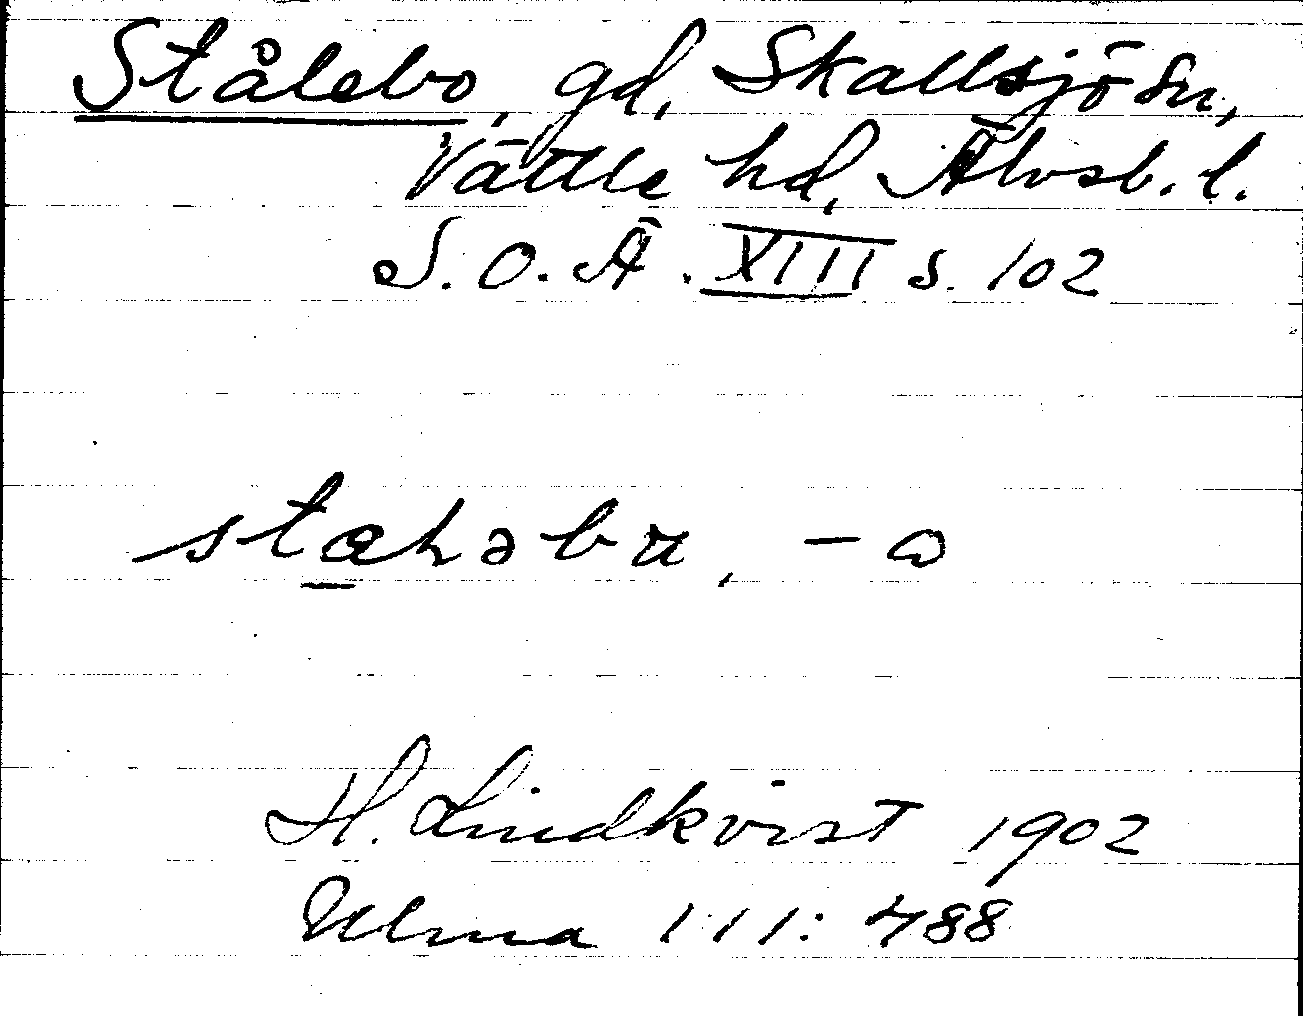 Stålebo, gd, Skallsjö sn,
Vättle hd, Älvsb. l.
S. O. Ä. XIII s. 102
stæhəbu, -ω
H. Lindkvist 1902
Ulma 111: 488